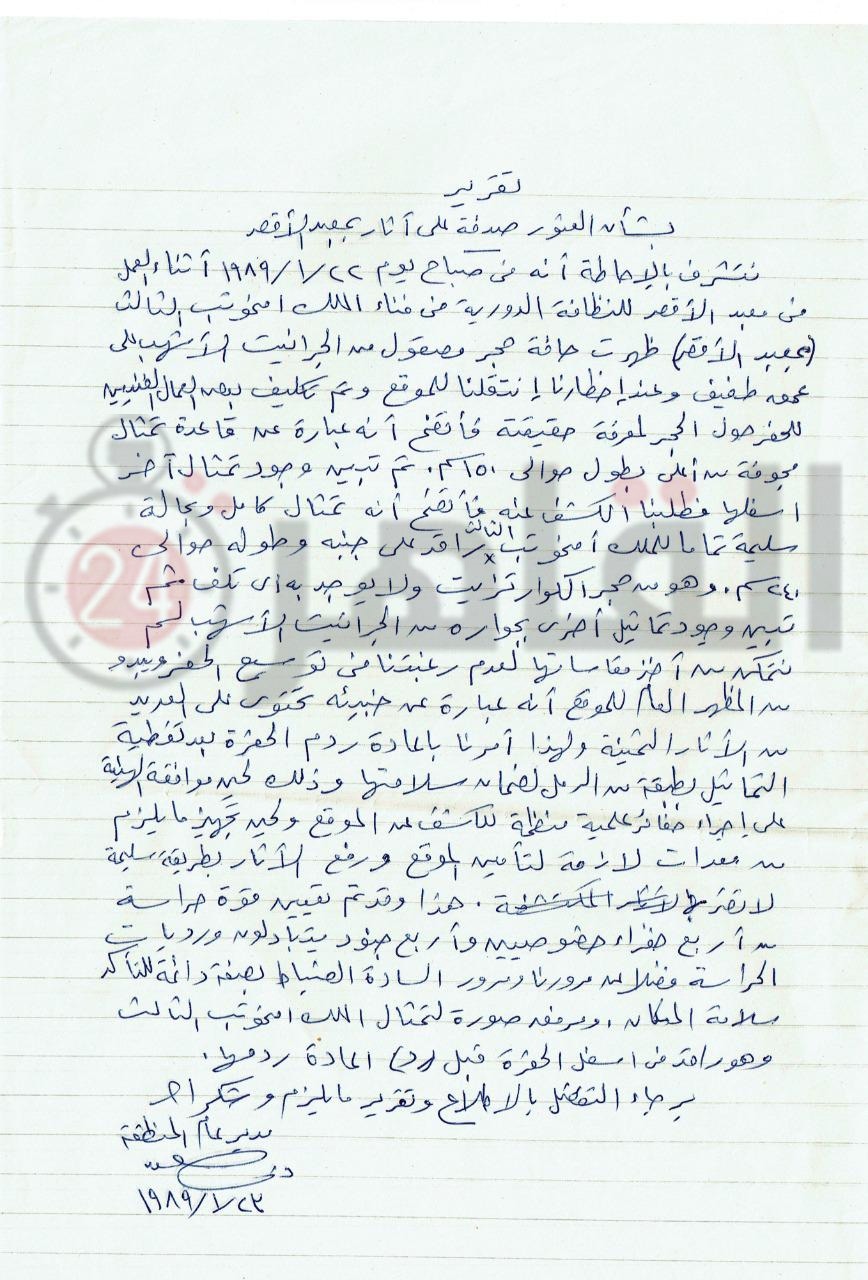 تقرير
بشأن العثور صدفة على آثار بمعبد الأقصر
نتشرف بالإحاطة أنه فى صباح يوم ٢٢/١/١٩٨٩ أثناء العمل
فى معبد الأقصر للنظافة الدورية فى فناء الملك امنحوتب الثالث
(بمعبد الأقصر) ظهرت حافة حجر مصقول من الجرانيت الأشهب على
عمق طفيف وعند إخطارنا إنتقلنا للموقع وتم تكليف بعض العمال الفنيين
للحفر حول الحجر لمعرفة حقيقته فأتضح أنه عبارة عن قاعدة تمثال
مجوفة من أعلى بطول حوالى ١٥٠سم. ثم تبين وجود تمثال آخر
اسفلها فطلبنا الكشف عنه فأتضح أنه تمثال كامل وبحالة
سليمة تماما للملك أمنحوتب الثالث راقد على جنبه وطوله حوالى
٢٤٠سم. وهو من حجر الكوارتزيت ولا يوجد به اى تلف ثم
تبين وجود تماثيل أخرى بجواره من الجرانيت الأشهب لم
نتمكن من أخذ مقاساتها لعدم رغبتنا فى توسيع الحفر ويبدو
من المظهر العام للموقع أنه عبارة عن خبيئه تحتوى على العديد
من الأثار الثمينة ولهذا أمرنا باعادة ردم الحفرة بعد تغطية
التماثيل بطبقة من الرمل لضمان سلامتها وذلك لحين موافقة الهيئة
على إجراء حفائر علمية منظمة للكشف عن الموقع ولحين تجهيز ما يلزم
من معدات لازمة لتأمين الموقع ورفع الأثار بطريقة سليمة
لا تضر بالأثار المكتشفة. هذا وقد تم تعيين قوة حراسة
من أربع خفراء خصوصيين وأربع جنود يتبادلون ورديات
الحراسة فضلا عن مرورنا ومرور السادة الضباط بصفة دائمة للتأكد
سلامة المكان. ومرفق صورة لتمثال الملك امنحوتب الثالث
وهو راقد فى اسفل الحفرة قبل (رد) اعادة ردمها.
برجاء التفضل بالاطلاع وتقرير ما يلزم وشكرا
مدير عام المنطقة
٢٣/١/١٩٨٩
القاهرة
24